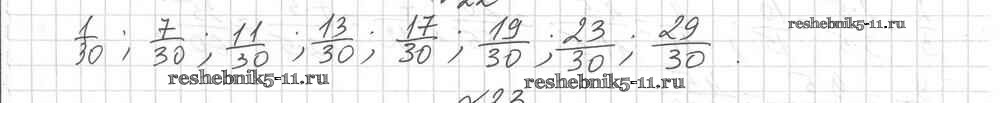 №22
1/30 ; 7/30 ; 11/30 ; 13/30 ; 17/30 ; 19/30 ; 23/30 ; 29/30 .
reshebnik5-11.ru
reshebnik5-11.ru
reshebnik5-11.ru
№23